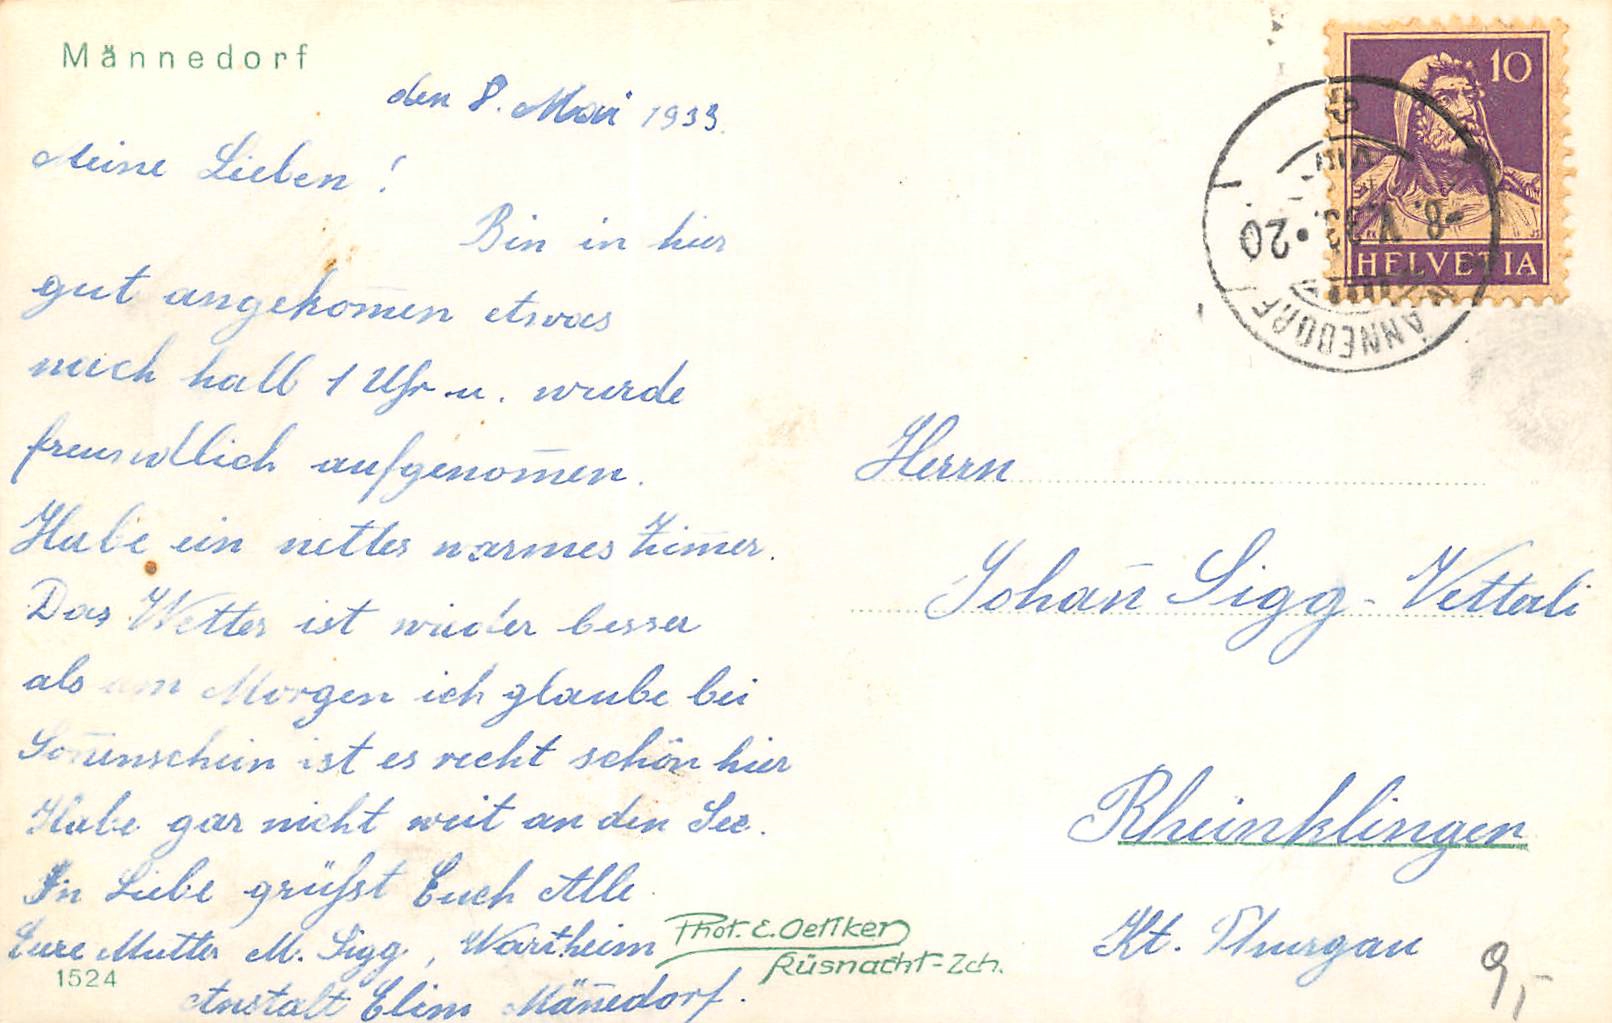 Männedorf
den 8. Mai 1933.
Meine Lieben!
Bin in hier
gut angekom̄en etwas
nach halb 1 Uhr u. wurde
freundlich aufgenom̄en.
Habe ein nettes warmes Zim̄er.
Das Wetter ist wieder besser
als am Morgen ich glaube bei
Son̄enschein ist es recht schön hier
Habe gar nicht weit an den See.
In Liebe grüsst Euch Alle
Eure Mutter M. Sigg, Wartheim
Anstalt Elim Män̄edorf.
1524
Phot. E. Oettiker
Küsnacht-Zch.
10
HELVETIA
MÄNNEDORF
-8.V.33.•20
Herrn
Johan̄ Sigg-Vetterli
Rheinklingen
Kt. Thurgau
9,-